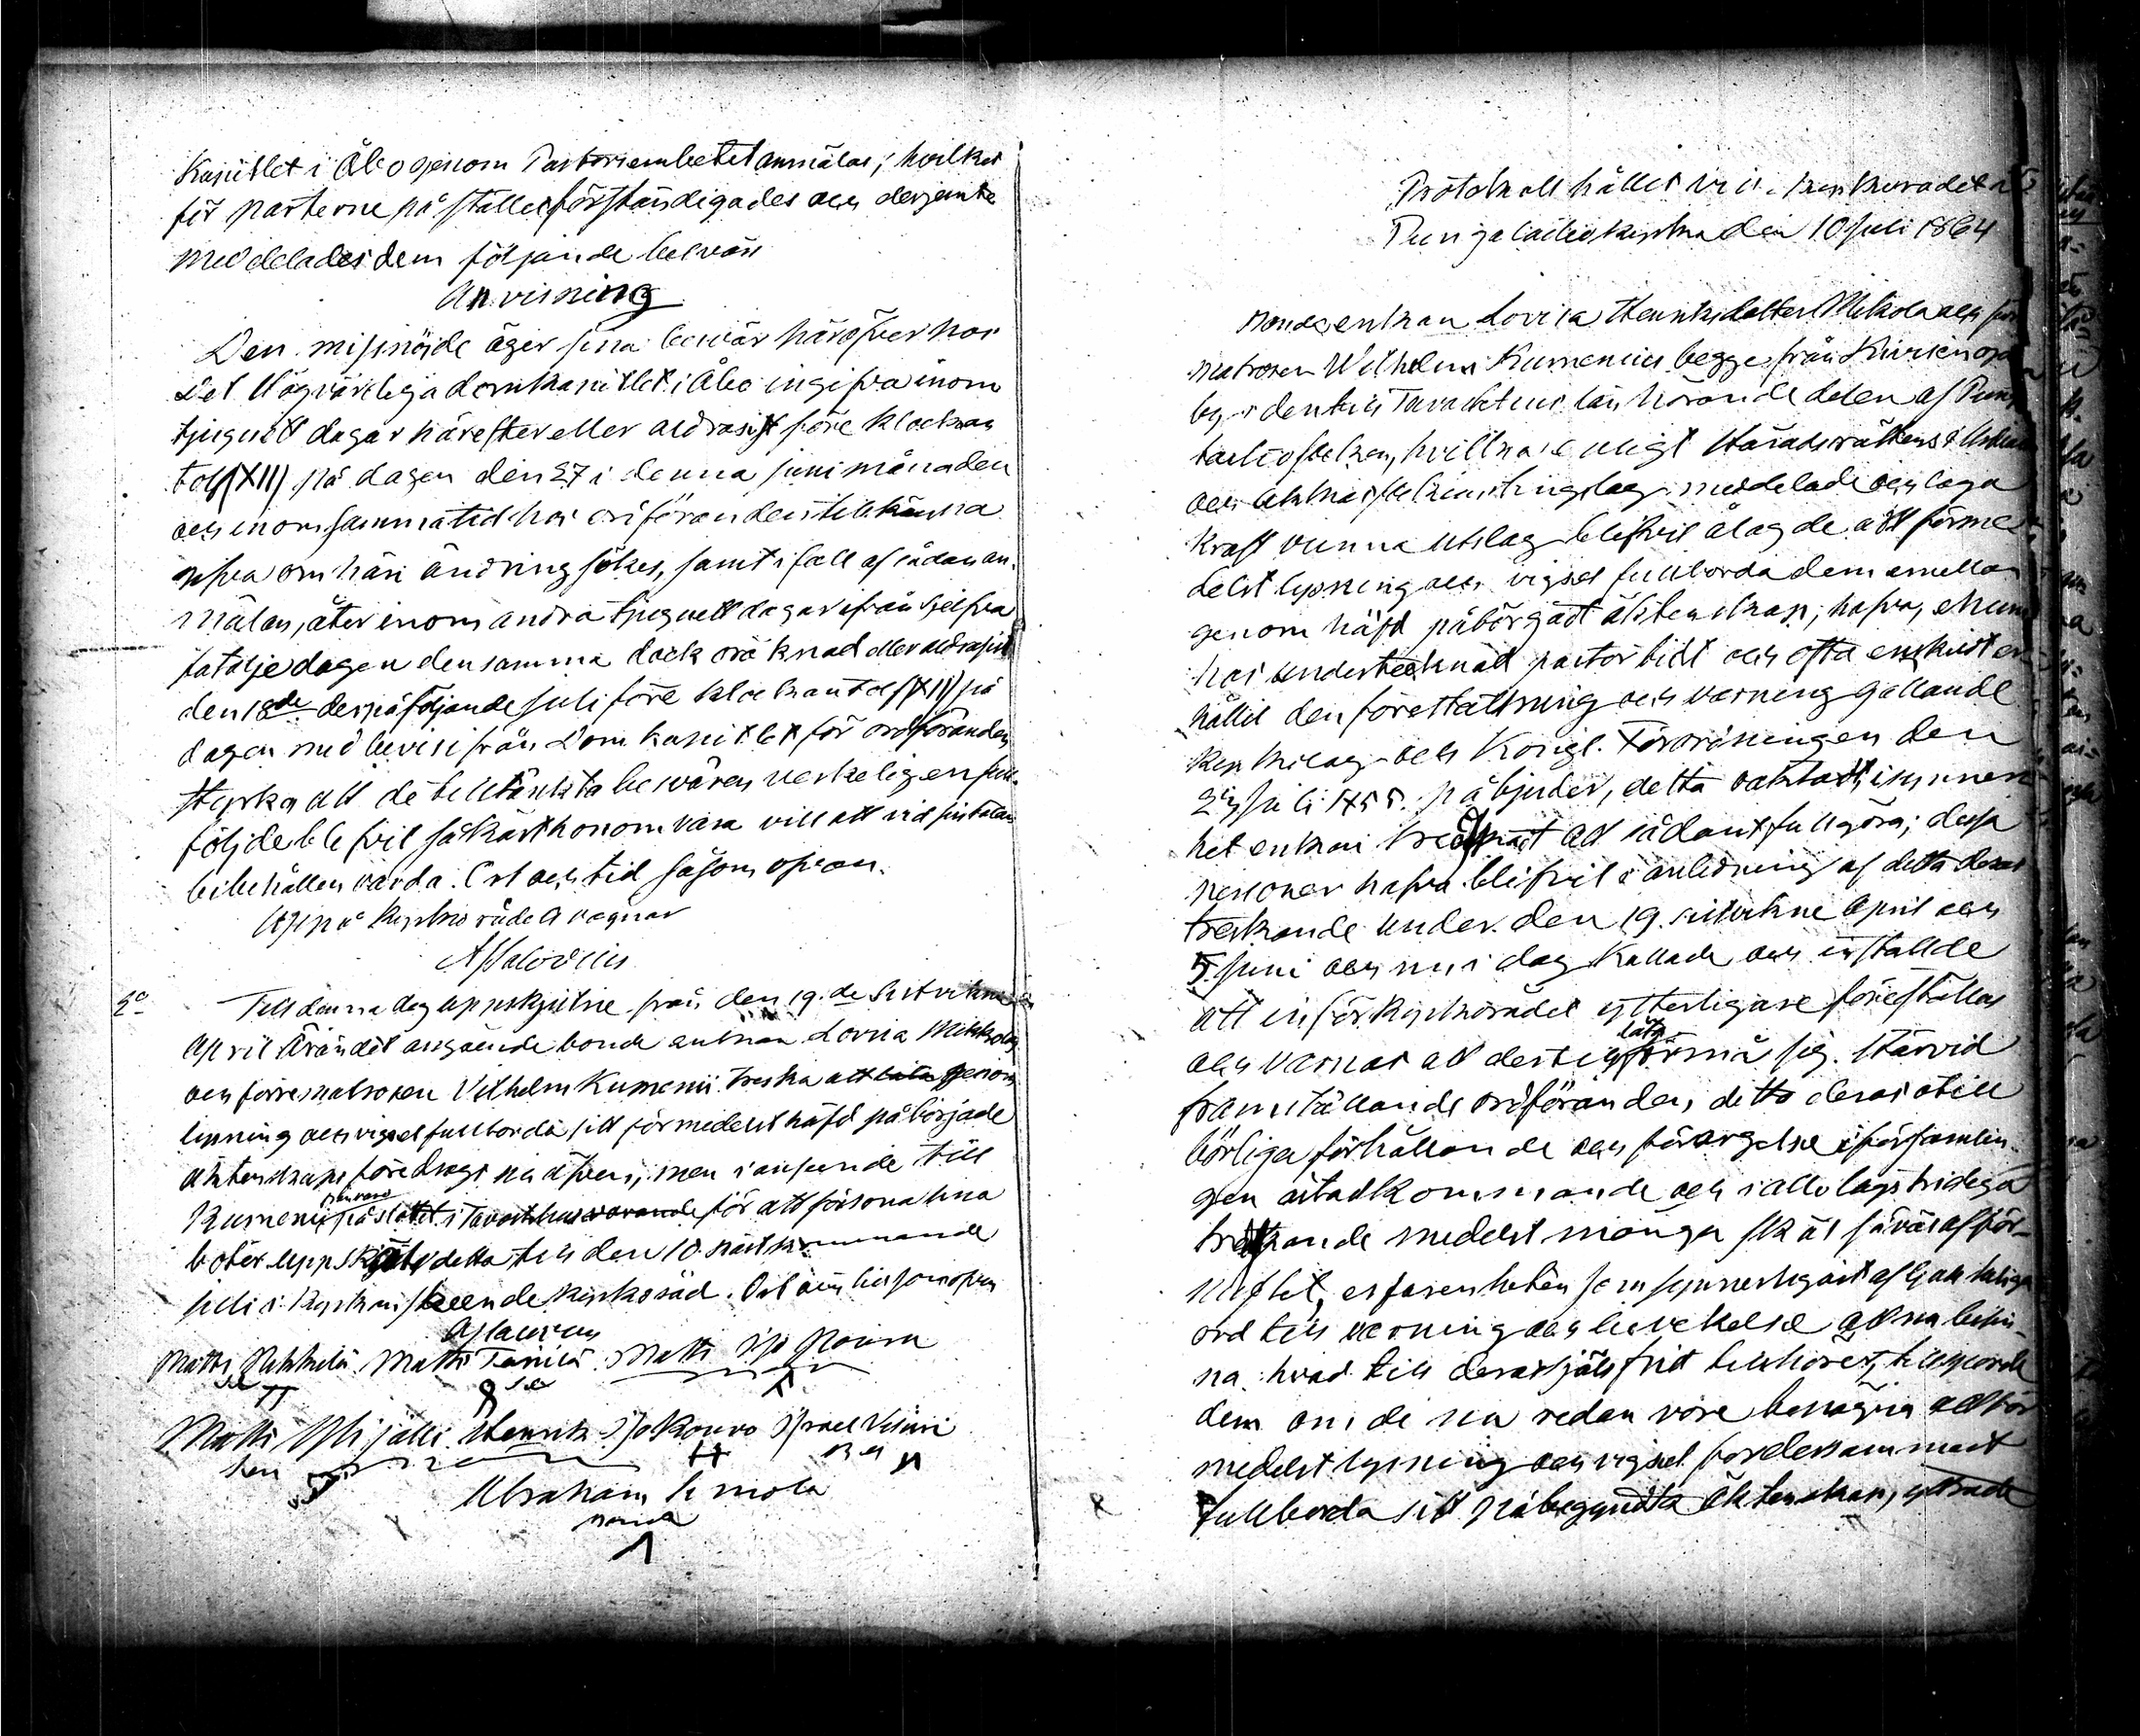 Kapitlet i Åbo genom Pastorsembetet anmälas; hvilket
för parterne på stället förständigades och derjemte
meddelades dem följande besvärs
Anvisning
Den missnöjde äger sina besvär häröfver hos
Det Högvördiga domkapitlet i Åbo ingifva inom
tjuguett dagar härefter eller aldrasist före klockan
tolf (XII) på dagen den 27 i denna juni månaden
och inom samma tid hos ordföranden tillkänna
gifva om häri ändring sökes, samt i fall af sådan an-
mälan, åter inom andra tjuguett dagar ifrån sjelfva
fataljedagen densamma dock oräknad eller aldrasist
den 18de derpåföljande juli före klockan tolf (XII) på
dagen med bevis ifrån Domkapitlet för ordföranden
styrka, att de tilltänkta besvären verkeligen full-
följde blifvit så kärt honom vara vill att vid sin talan
bibehållen varda. Ort och tid såsom ofvan.
Uppå Kyrkorådets vägnar
2o
Till denna dag uppskjutne från den 19.de sistvikne
April Ärendet angående bonde enkan Lovisa Mikkola
och förre matrosen Vilhelm Kumenii treska att låta genom
lysning och vigsel fullborda sitt förmedelst häfd påbörjade
äktenskap företogs nu äfven; men i anseende till
Kumenii närvaro på slottet i Tavasthus varande för att försona sina
böter uppskjöts detta till den 10 nästkommande
juli i kyrkan skeende kyrkoråd. Ort och tid som ofvan
Matti Matti Tanila Matti
Matti Henrik Israel
Abraham

Protokoll hållet vid kyrkorådet
Pungalaitio kyrka den 10 Juli 1864
Bonde enkan Lovisa Henriksdotter Mikola och
matrosen Wilhelm Kumenius begge från Kivisenoja
by i den till Tavastehus län hörande delen af Punga-
laitio socken, hvilka enligt Häradsrättens i
och socknars tingslag meddelade och laga
kraft vunna utslag blifvit ålagde att förme-
delst lysning och vigsel fullborda dem emellan
genom häfd påbörgadt äktenskap, hafva, ehuru
hos undertecknad pastor bidt och ofta enskildt er-
hållit den föreställning och varning gällande
Kyrkolag och Kongl. Förordningen den
Juli 1855. påbjuder, detta oaktadt, synner-
het enkan tredskat att sådant fullgöra; dessa
personer hafva blifvit i anledning af detta deras
treskande under den 19. sistvikne April och
5. Juni och nu i dag kallade och inställde
att inför Kyrkorådet ytterligare föreställas
och varnas att dertill låta förmå sig. Härvid
framställande ordföranden, detta deras otill
börliga förhållande och förargelse i församlin-
gen åstadkommande och i allo lagstridiga
tredskande medelst många skäl såväl af för-
nuftet, erfarenheten som synnerligast af
ord till varning och bevekelse att nu besin-
na hvad till deras själs frid tillhörer, tillsporde
dem om de nu redan vore benägna att för
medelst lysning och vigsel fordersammast
fullborda sitt påbegyndta äktenskap, yttrade